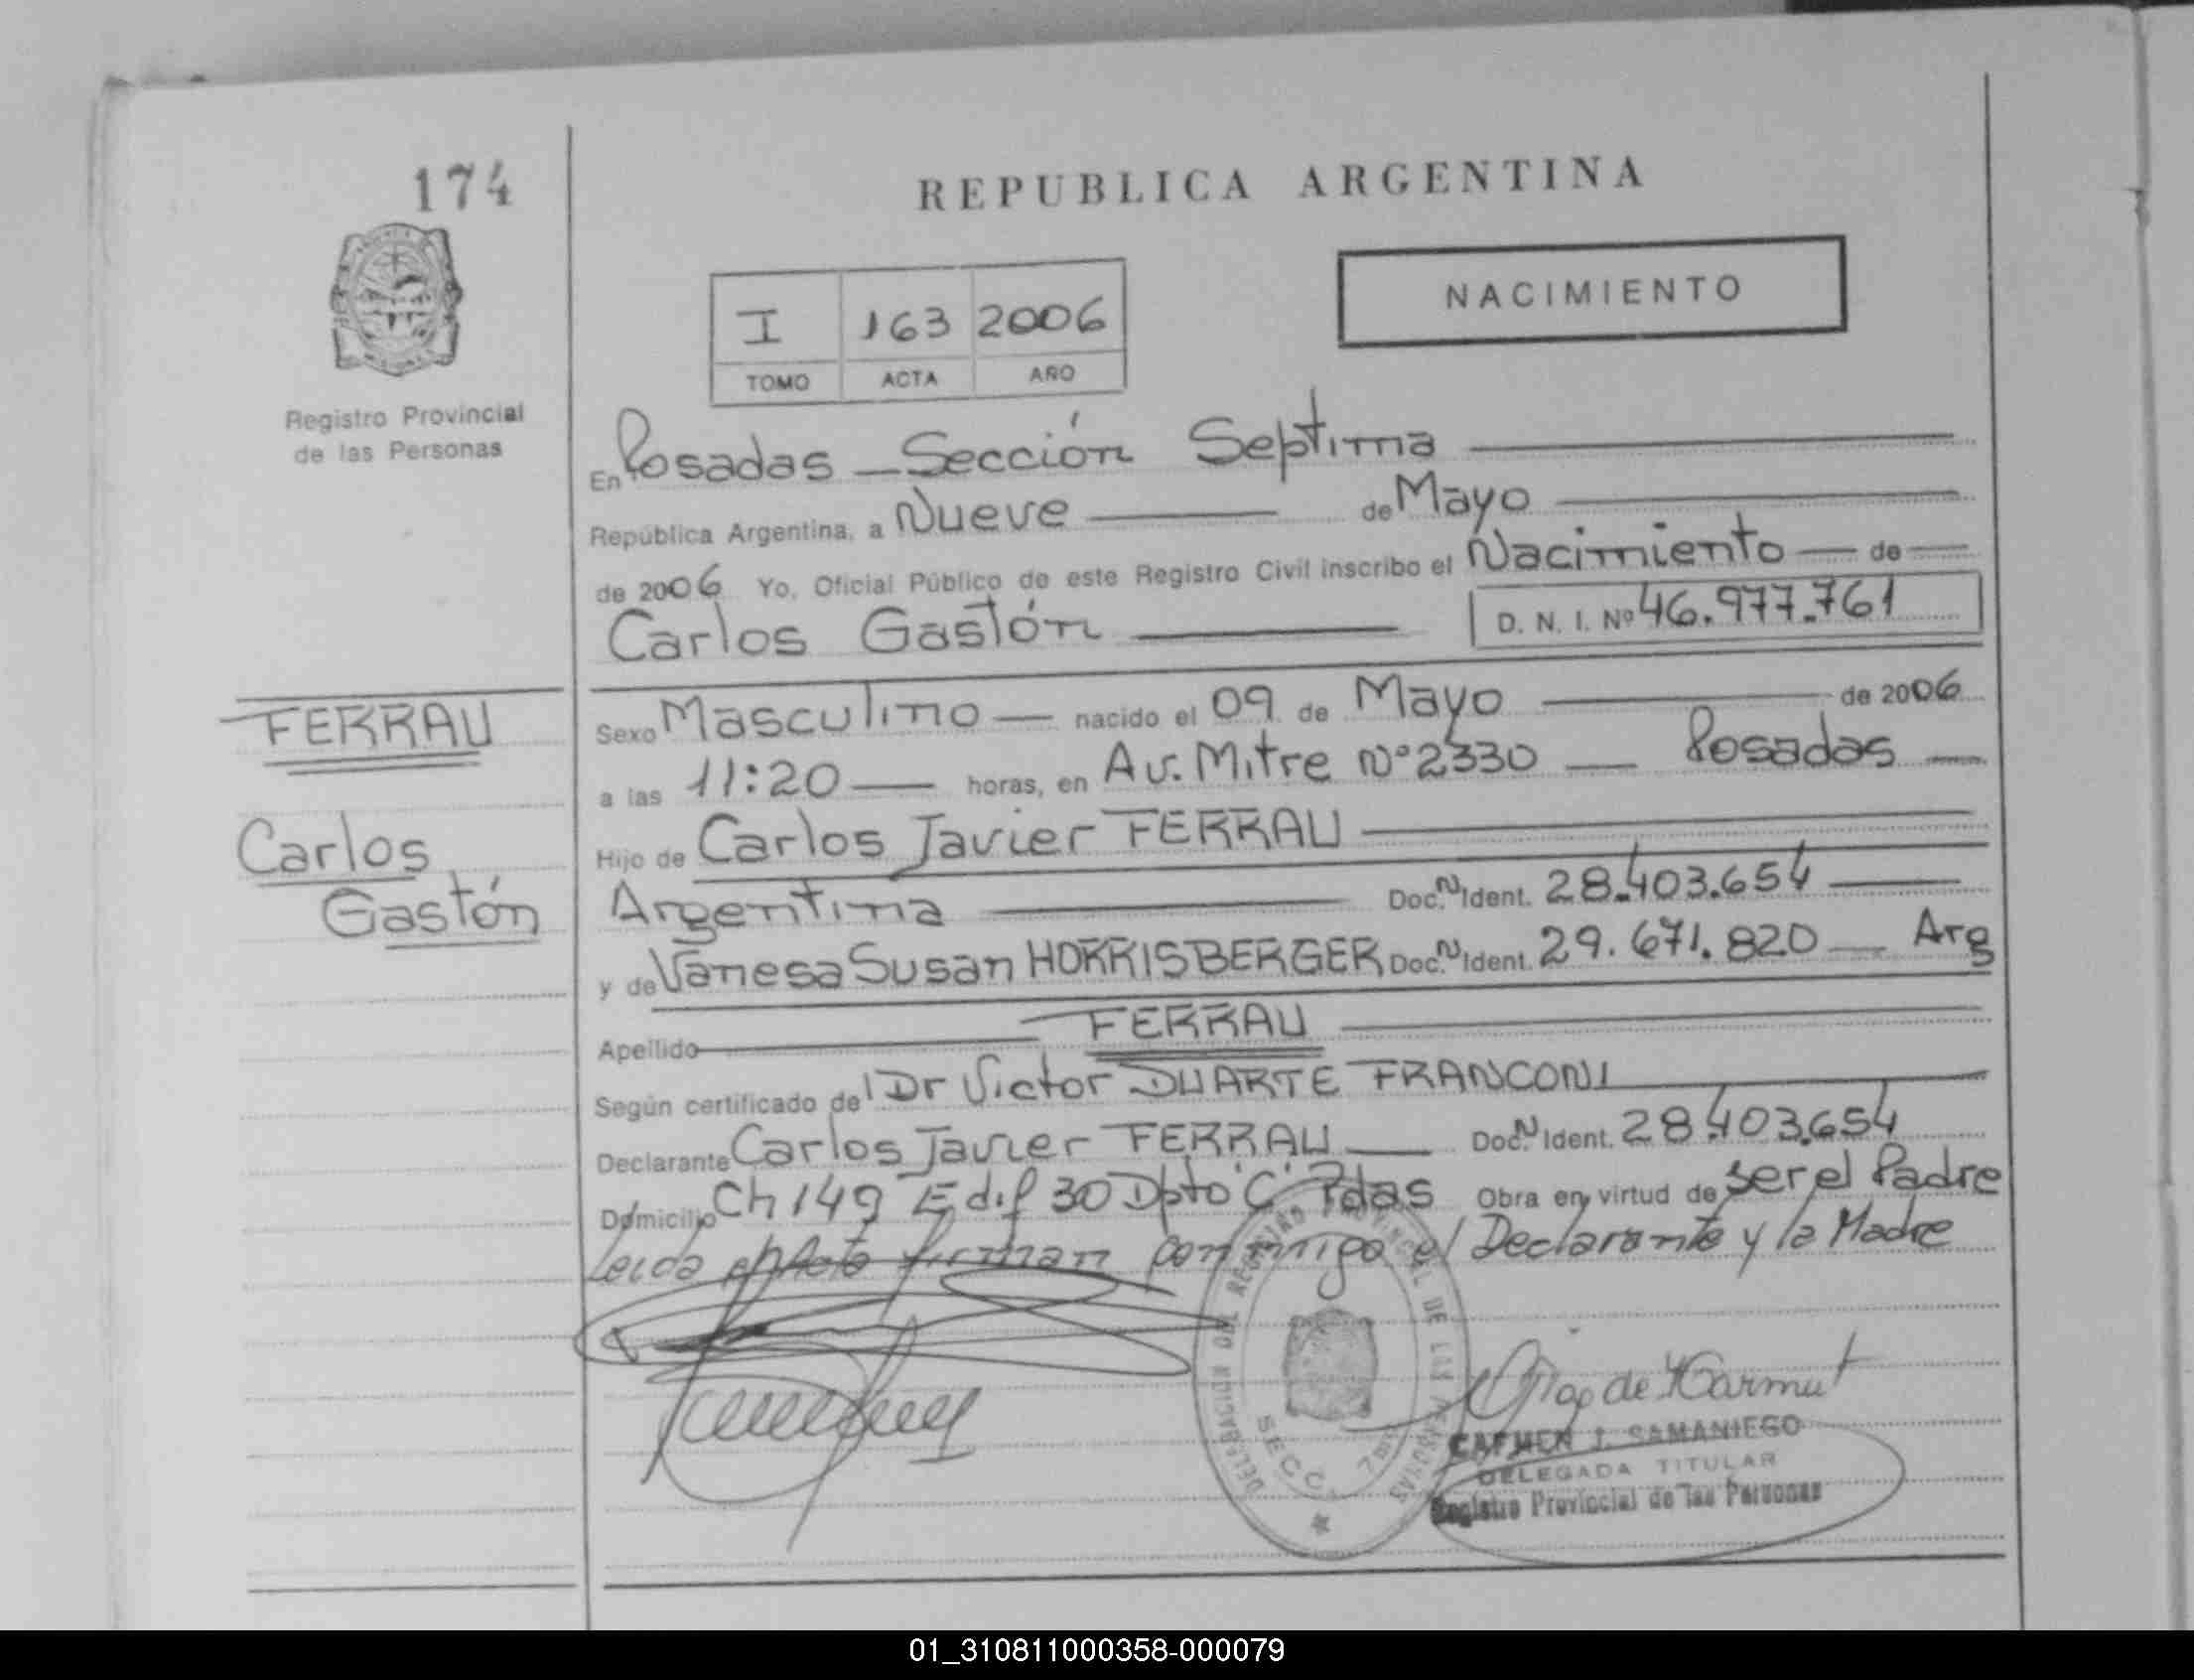 174
REPUBLICA ARGENTINA
NACIMIENTO
I 163 2006
TOMO ACTA AÑO
Registro Provincial
de las Personas
En Posadas — Sección Septima
República Argentina, a Nueve de Mayo
de 2006 Yo, Oficial Público de este Registro Civil inscribo el Nacimiento — de
Carlos Gastón D. N. I. Nº 46.977.761
FERRAU
Carlos
Gastón
Sexo Masculino — nacido el 09 de Mayo de 2006
a las 11:20 — horas, en Av. Mitre Nº 2330 — Posadas
Hijo de Carlos Javier FERRAU
Argentina Doc. N Ident. 28.403.654
y de Vanesa Susan HORRISBERGER Doc. N Ident. 29.671.820 — Arg
Apellido FERRAU
Según certificado del Dr Victor DUARTE FRANCONI
Declarante Carlos Javier FERRAU Doc. N Ident. 28.403.654
Domicilio Ch 149 Edif 30 Dpto "C" Pdas Obra en virtud de ser el Padre
Leida el Acta firman conmigo el Declarante y la Madre
DELEGACION DEL REGISTRO PROVINCIAL DE LAS PERSONAS
SECC. 7ma
CARMEN J. SAMANIEGO
DELEGADA TITULAR
Registro Provincial de las Personas
01_310811000358-000079